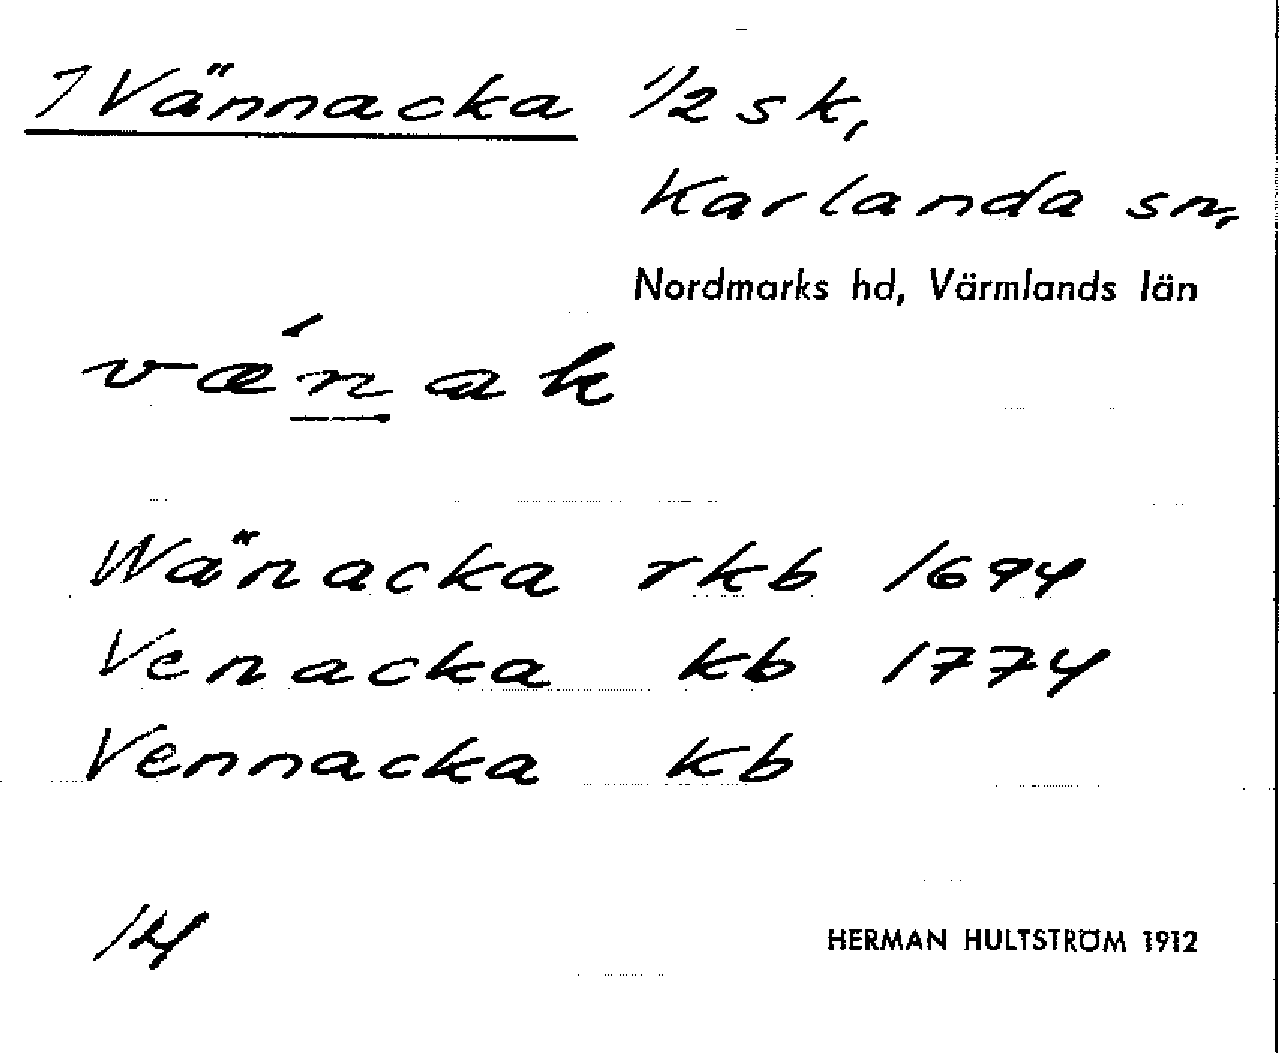 7 Vännacka 1/2 sk,
Karlanda sn,
Nordmarks hd, Värmlands län
væ´nak
Wänacka rkb 1694
Venacka kb 1774
Vennacka kb
14
HERMAN HULTSTRÖM 1912